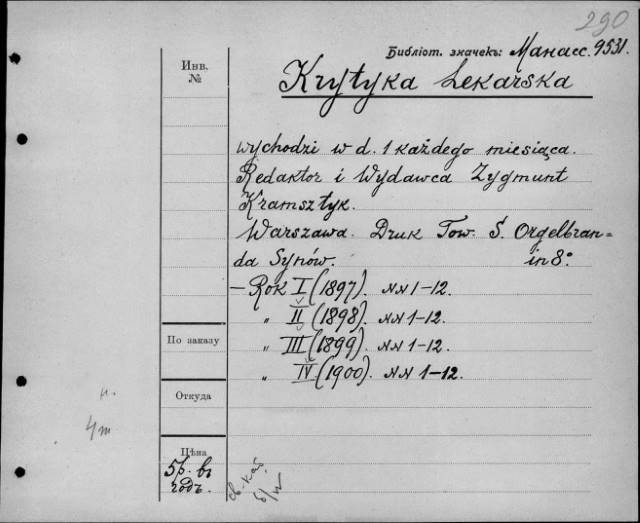 290
Библіот. значекъ: Манасс. 9531.
Инв.
№
Krytyka Lekarska
wychodzi w d. 1 każdego miesiąca.
Redaktor i Wydawca Zygmunt
Kramsztyk.
Warszawa. Druk Tow. S. Orgelbran=
da Synów. in 8°
— Rok I (1897). NN 1–12.
„ II (1898). NN 1–12.
„ III (1899). NN 1–12.
„ IV (1900). NN 1–12.
По заказу
Откуда
Цѣна
5 р. въ
годъ.
св. кат.